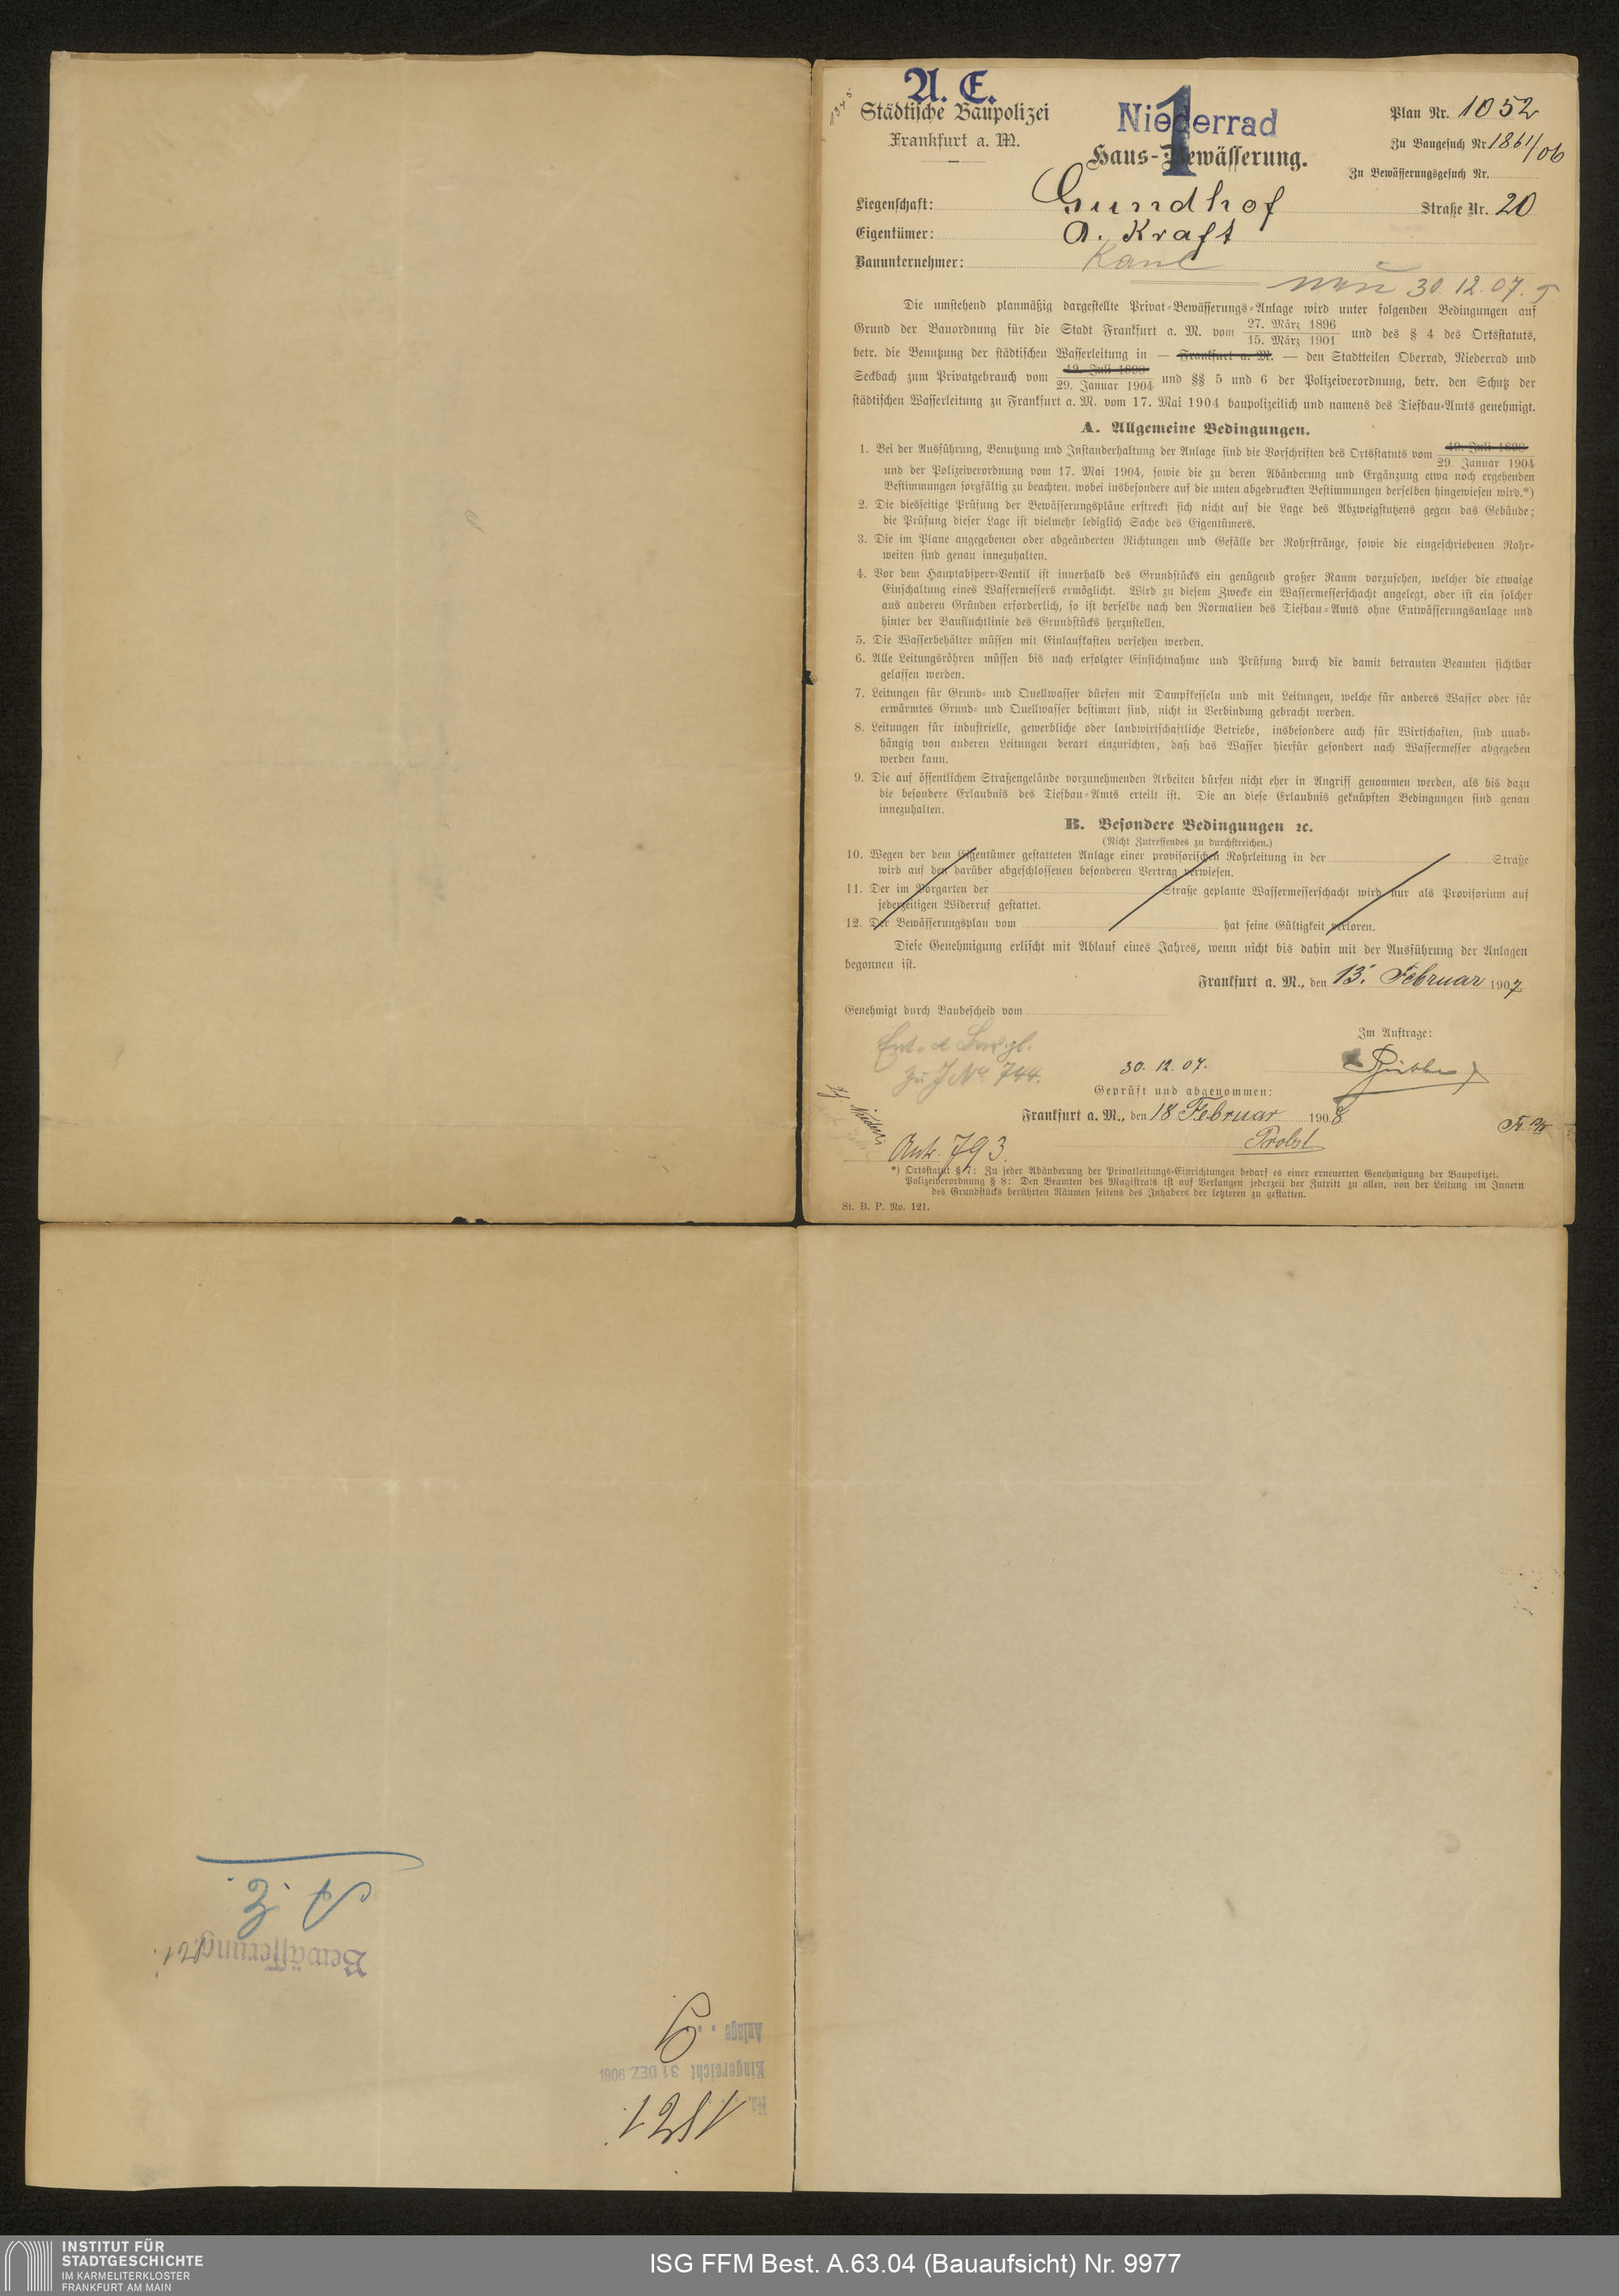 A. E.
Städtische Baupolizei
Frankfurt a. M.
Niederrad
1
Haus-Bewässerung.
Plan Nr. 1052
Zu Baugesuch Nr. 1861/06
Zu Bewässerungsgesuch Nr.
Liegenschaft: Gundhof Straße Nr. 20
Eigentümer: A. Kraft
Bauunternehmer:
30.12.07.
Die umstehend planmäßig dargestellte Privat-Bewässerungs-Anlage wird unter folgenden Bedingungen auf
Grund der Bauordnung für die Stadt Frankfurt a. M. vom 27. März 1896 / 15. März 1901 und des § 4 des Ortsstatuts,
betr. die Benutzung der städtischen Wasserleitung in — Frankfurt a. M. — den Stadtteilen Oberrad, Niederrad und
Seckbach zum Privatgebrauch vom 19. Juli 1898 / 29. Januar 1904 und §§ 5 und 6 der Polizeiverordnung, betr. den Schutz der
städtischen Wasserleitung zu Frankfurt a. M. vom 17. Mai 1904 baupolizeilich und namens des Tiefbau-Amts genehmigt.
A. Allgemeine Bedingungen.
1. Bei der Ausführung, Benutzung und Instanderhaltung der Anlage sind die Vorschriften des Ortsstatuts vom 19. Juli 1898 / 29. Januar 1904
und der Polizeiverordnung vom 17. Mai 1904, sowie die zu deren Abänderung und Ergänzung etwa noch ergehenden
Bestimmungen sorgfältig zu beachten, wobei insbesondere auf die unten abgedruckten Bestimmungen derselben hingewiesen wird.*)
2. Die diesseitige Prüfung der Bewässerungspläne erstreckt sich nicht auf die Lage des Abzweigstutzens gegen das Gebäude;
die Prüfung dieser Lage ist vielmehr lediglich Sache des Eigentümers.
3. Die im Plane angegebenen oder abgeänderten Richtungen und Gefälle der Rohrstränge, sowie die eingeschriebenen Rohr-
weiten sind genau innezuhalten.
4. Vor dem Hauptabsperr-Ventil ist innerhalb des Grundstücks ein genügend großer Raum vorzusehen, welcher die etwaige
Einschaltung eines Wassermessers ermöglicht. Wird zu diesem Zwecke ein Wassermesserschacht angelegt, oder ist ein solcher
aus anderen Gründen erforderlich, so ist derselbe nach den Normalien des Tiefbau-Amts ohne Entwässerungsanlage und
hinter der Baufluchtlinie des Grundstücks herzustellen.
5. Die Wasserbehälter müssen mit Einlaufkasten versehen werden.
6. Alle Leitungsröhren müssen bis nach erfolgter Einsichtnahme und Prüfung durch die damit betrauten Beamten sichtbar
gelassen werden.
7. Leitungen für Grund- und Quellwasser dürfen mit Dampfkesseln und mit Leitungen, welche für anderes Wasser oder für
erwärmtes Grund- und Quellwasser bestimmt sind, nicht in Verbindung gebracht werden.
8. Leitungen für industrielle, gewerbliche oder landwirtschaftliche Betriebe, insbesondere auch für Wirtschaften, sind unab-
hängig von anderen Leitungen derart einzurichten, daß das Wasser hierfür gesondert nach Wassermesser abgegeben
werden kann.
9. Die auf öffentlichem Straßengelände vorzunehmenden Arbeiten dürfen nicht eher in Angriff genommen werden, als bis dazu
die besondere Erlaubnis des Tiefbau-Amts erteilt ist. Die an diese Erlaubnis geknüpften Bedingungen sind genau
innezuhalten.
B. Besondere Bedingungen ꝛc.
(Nicht Zutreffendes zu durchstreichen.)
10. Wegen der dem Eigentümer gestatteten Anlage einer provisorischen Rohrleitung in der Straße
wird auf den darüber abgeschlossenen besonderen Vertrag verwiesen.
11. Der im Vorgarten der Straße geplante Wassermesserschacht wird nur als Provisorium auf
jederzeitigen Widerruf gestattet.
12. Der Bewässerungsplan vom hat seine Gültigkeit verloren.
Diese Genehmigung erlischt mit Ablauf eines Jahres, wenn nicht bis dahin mit der Ausführung der Anlagen
begonnen ist.
Frankfurt a. M., den 13. Februar 1907
Genehmigt durch Baubescheid vom
Im Auftrage:
zu J No. 744.
30.12.07.
Geprüft und abgenommen:
Frankfurt a. M., den 18 Februar 1908
Probst
Antr. 793.
*) Ortsstatut § 7: Zu jeder Abänderung der Privatleitungs-Einrichtungen bedarf es einer erneuerten Genehmigung der Baupolizei.
Polizeiverordnung § 8: Den Beamten des Magistrats ist auf Verlangen jederzeit der Zutritt zu allen, von der Leitung im Innern
des Grundstücks berührten Räumen seitens des Inhabers der letzteren zu gestatten.
St. B. P. No. 121.
Bewässerung
No.
Eingereicht 31 DEZ. 1906
Anlage
INSTITUT FÜR
STADTGESCHICHTE
IM KARMELITERKLOSTER
FRANKFURT AM MAIN
ISG FFM Best. A.63.04 (Bauaufsicht) Nr. 9977